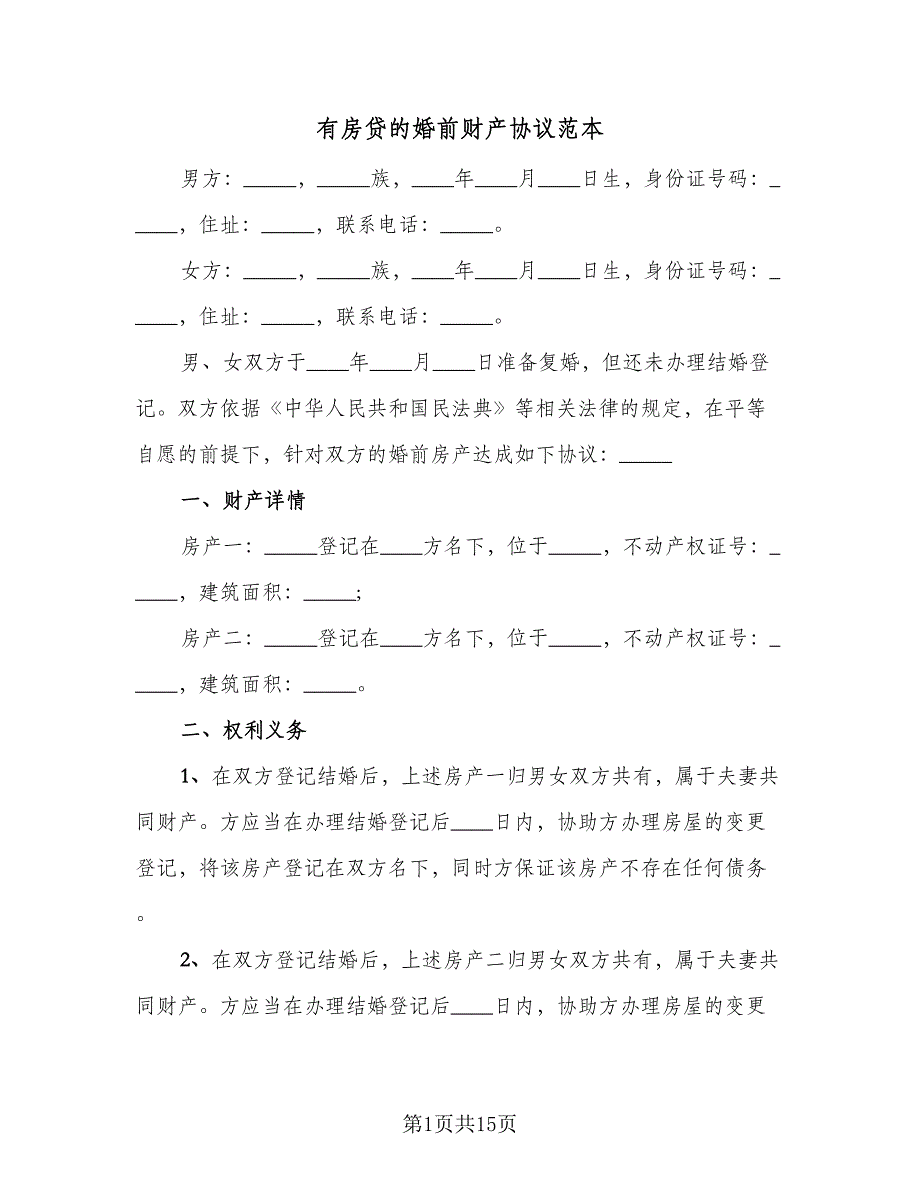 有房贷的婚前财产协议范本
男方：_____，_____族，____年____月____日生，身份证号码：_
____，住址：_____，联系电话：_____。
女方：_____，_____族，____年____月____日生，身份证号码：_
____，住址：_____，联系电话：_____。
男、女双方于____年____月____日准备复婚，但还未办理结婚登
记。双方依据《中华人民共和国民法典》等相关法律的规定，在平等
自愿的前提下，针对双方的婚前房产达成如下协议：_____
一、财产详情
房产一：_____登记在____方名下，位于_____，不动产权证号：_
____，建筑面积：_____;
房产二：_____登记在____方名下，位于_____，不动产权证号：_
____，建筑面积：_____。
二、权利义务
1、在双方登记结婚后，上述房产一归男女双方共有，属于夫妻共
同财产。方应当在办理结婚登记后____日内，协助方办理房屋的变更
登记，将该房产登记在双方名下，同时方保证该房产不存在任何债务
。
2、在双方登记结婚后，上述房产二归男女双方共有，属于夫妻共
同财产。方应当在办理结婚登记后____日内，协助方办理房屋的变更
第1页共15页